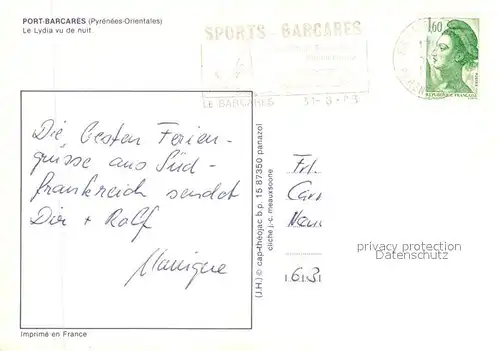 PORT-BARCARES (Pyrénées-Orientales)
Le Lydia vu de nuit
SPORTS - BARCARES
LE BARCARES
1,60
REPUBLIQUE FRANÇAISE
Die besten Ferien-
grüsse aus Süd-
frankreich sendet
Dir + Rolf
Monique
(J.H.) © cap-théojac b.p. 15 87350 panazol
cliché j.-c. meauxsoone
Frl.
privacy protection
Datenschutz
6 3
Imprimé en France